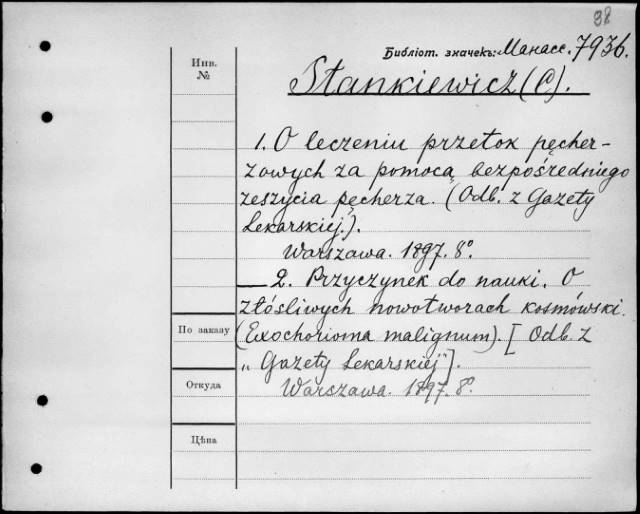 98
Библіот. значекъ: Манасс. 7936.
Инв.
№
Stankiewicz (C).
1. O leczeniu przetok pęcher-
zowych za pomocą bezpośredniego
zeszycia pęcherza. (Odb. z Gazety
Lekarskiej.).
Warszawa. 1897. 8°.
— 2. Przyczynek do nauki. O
złóśliwych nowotworach kosmówski.
По заказу
(Exochorioma malignum). [Odb. z
„Gazety Lekarskiej"].
Откуда
Warszawa. 1897. 8°.
Цѣна